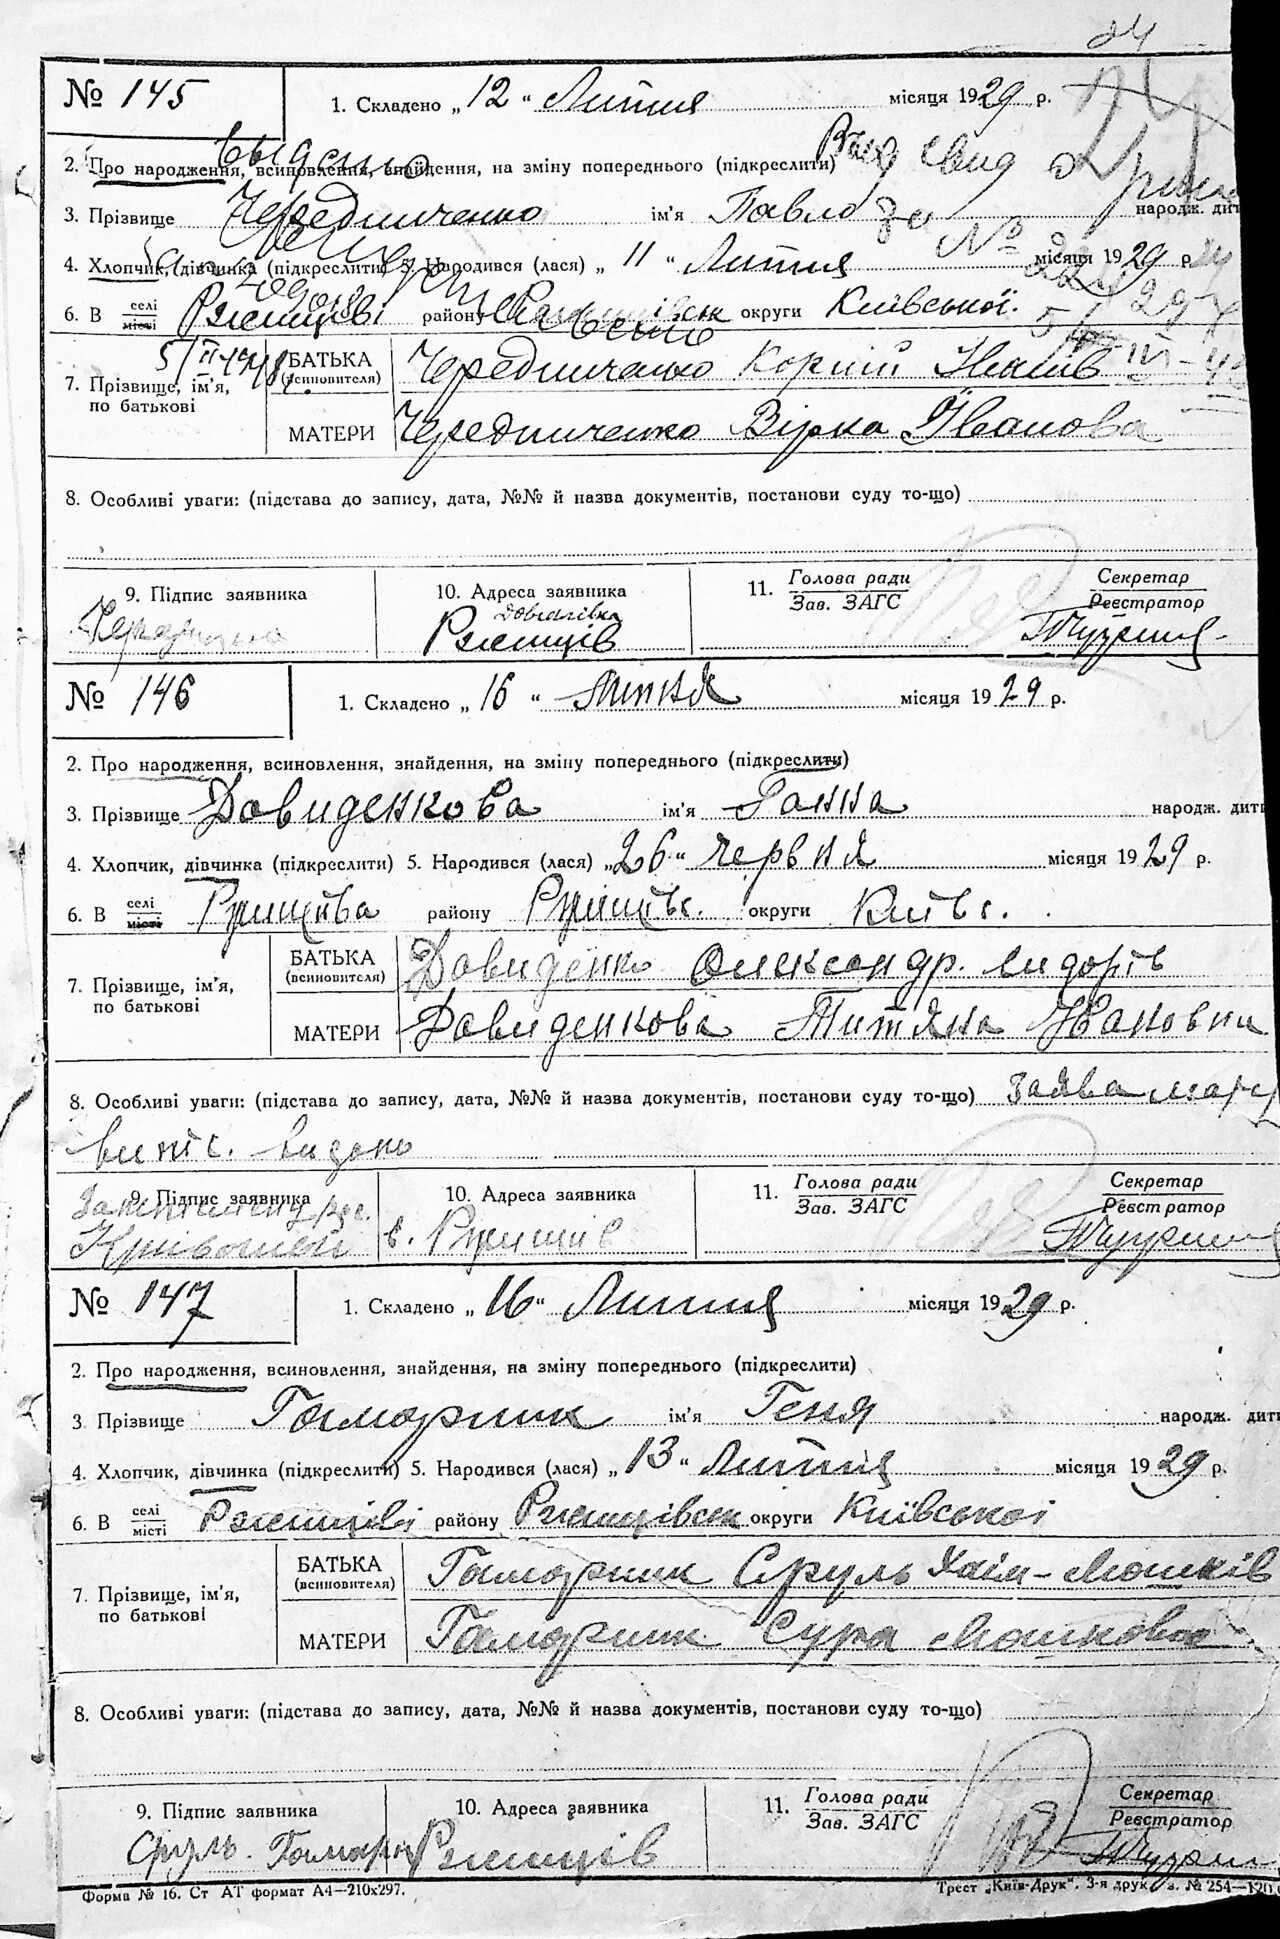 24
№ 145
1. Складено „ 12 “ Липня місяця 1929 р.
2. Про народження, всиновлення, знайдення, на зміну попереднього (підкреслити)
3. Прізвище Чередниченко ім'я Павло народж. дит
4. Хлопчик, дівчинка (підкреслити) 5. Народився (лася) „ 11 “ Липня місяця 1929 р.
6. В селі місті Ржищеві району округи Київської.
7. Прізвище, ім'я, по батькові
БАТЬКА (всиновителя) Чередниченко Корній
МАТЕРИ Чередниченко Вірка Іванова
8. Особливі уваги: (підстава до запису, дата, №№ й назва документів, постанови суду то-що)
9. Підпис заявника
10. Адреса заявника
Ржищів
11. Голова ради Зав. ЗАГС
Секретар Реєстратор
№ 146
1. Складено „ 16 “ Липня місяця 1929 р.
2. Про народження, всиновлення, знайдення, на зміну попереднього (підкреслити)
3. Прізвище Давиденкова ім'я Ганна народж. дит
4. Хлопчик, дівчинка (підкреслити) 5. Народився (лася) „ 26 “ червня місяця 1929 р.
6. В селі місті Ржищева району Ржищівс. округи Київс.
7. Прізвище, ім'я, по батькові
БАТЬКА (всиновителя) Давиденко Олександр. Сидорів
МАТЕРИ Давиденкова Титяна Ивановна
8. Особливі уваги: (підстава до запису, дата, №№ й назва документів, постанови суду то-що) Заява
видано
9. Підпис заявника
10. Адреса заявника
в. Ржищів
11. Голова ради Зав. ЗАГС
Секретар Реєстратор
№ 147
1. Складено „ 16 “ Липня місяця 1929 р.
2. Про народження, всиновлення, знайдення, на зміну попереднього (підкреслити)
3 Прізвище Гамарник ім'я Геня народж. дит
4. Хлопчик, дівчинка (підкреслити) 5. Народився (лася) „ 13 “ Липня місяця 1929 р.
6. В селі місті Ржищіві району Ржищівськ округи Київської
7. Прізвище, ім'я, по батькові
БАТЬКА (всиновителя) Гамарник Сруль Хаім-Мошків
МАТЕРИ Гамарник Сура Мошкова
8. Особливі уваги: (підстава до запису, дата, №№ й назва документів, постанови суду то-що)
9. Підпис заявника
Сруль. Гамарн
10. Адреса заявника
Ржищів
11. Голова ради Зав. ЗАГС
Секретар Реєстратор
Форма № 16. Ст АТ формат А4—210х297.
Трест „Київ-Друк“. 3-я друк. з. № 254—120.0